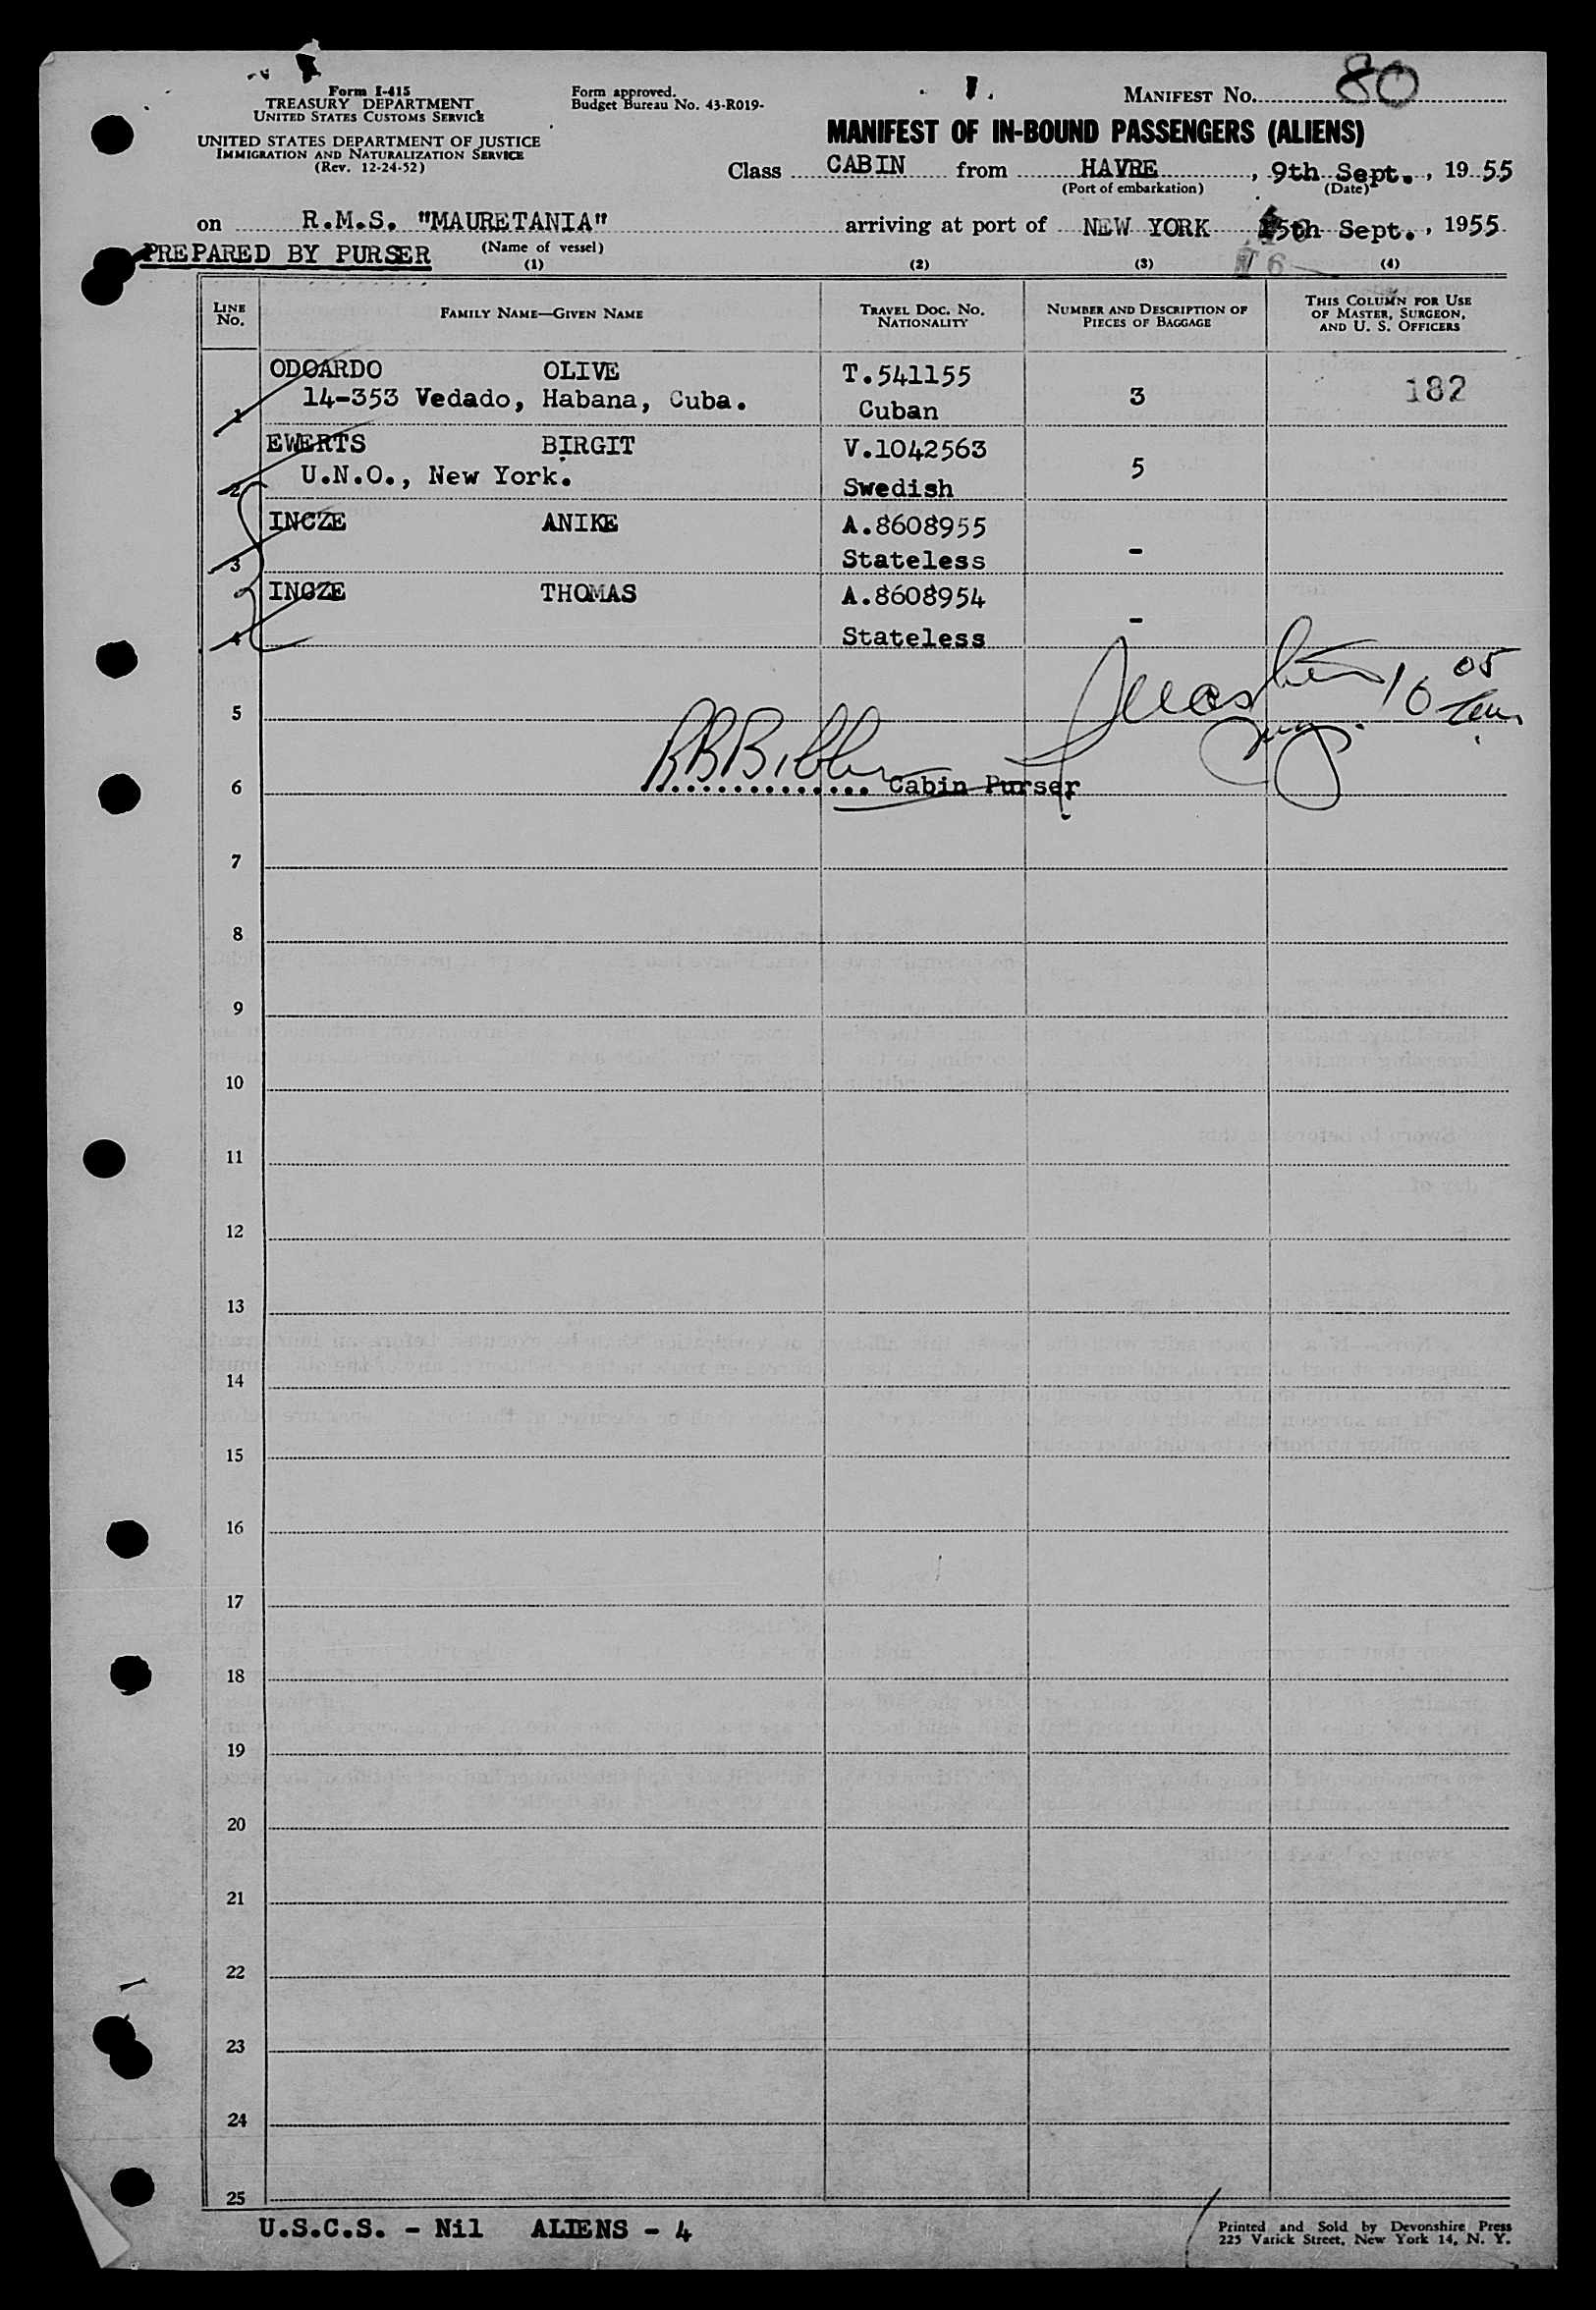 Form I-415
TREASURY DEPARTMENT
UNITED STATES CUSTOMS SERVICE
UNITED STATES DEPARTMENT OF JUSTICE
IMMIGRATION AND NATURALIZATION SERVICE
(Rev. 12-24-52)
Form approved.
Budget Bureau No. 43-R019-
MANIFEST NO. 80
MANIFEST OF IN-BOUND PASSENGERS (ALIENS)
Class CABIN from HAVRE, 9th Sept., 1955
(Port of embarkation) (Date)
on R.M.S. "MAURETANIA" arriving at port of NEW YORK 15th Sept., 1955
16
PREPARED BY PURSER (Name of vessel)
(1) (2) (3) (4)
LINE No. FAMILY NAME—GIVEN NAME TRAVEL DOC. NO. NATIONALITY NUMBER AND DESCRIPTION OF PIECES OF BAGGAGE THIS COLUMN FOR USE OF MASTER, SURGEON, AND U. S. OFFICERS
ODOARDO OLIVE T.541155
1 14-353 Vedado, Habana, Cuba. Cuban 3 182
EWERTS BIRGIT V.1042563
2 U.N.O., New York. Swedish 5
INCZE ANIKE A.8608955
3 Stateless -
INCZE THOMAS A.8608954
4 Stateless -
5
6 Cabin Purser
7
8
9
10
11
12
13
14
15
16
17
18
19
20
21
22
23
24
25
U.S.C.S. - Nil ALIENS - 4
Printed and Sold by Devonshire Press
225 Varick Street, New York 14, N. Y.